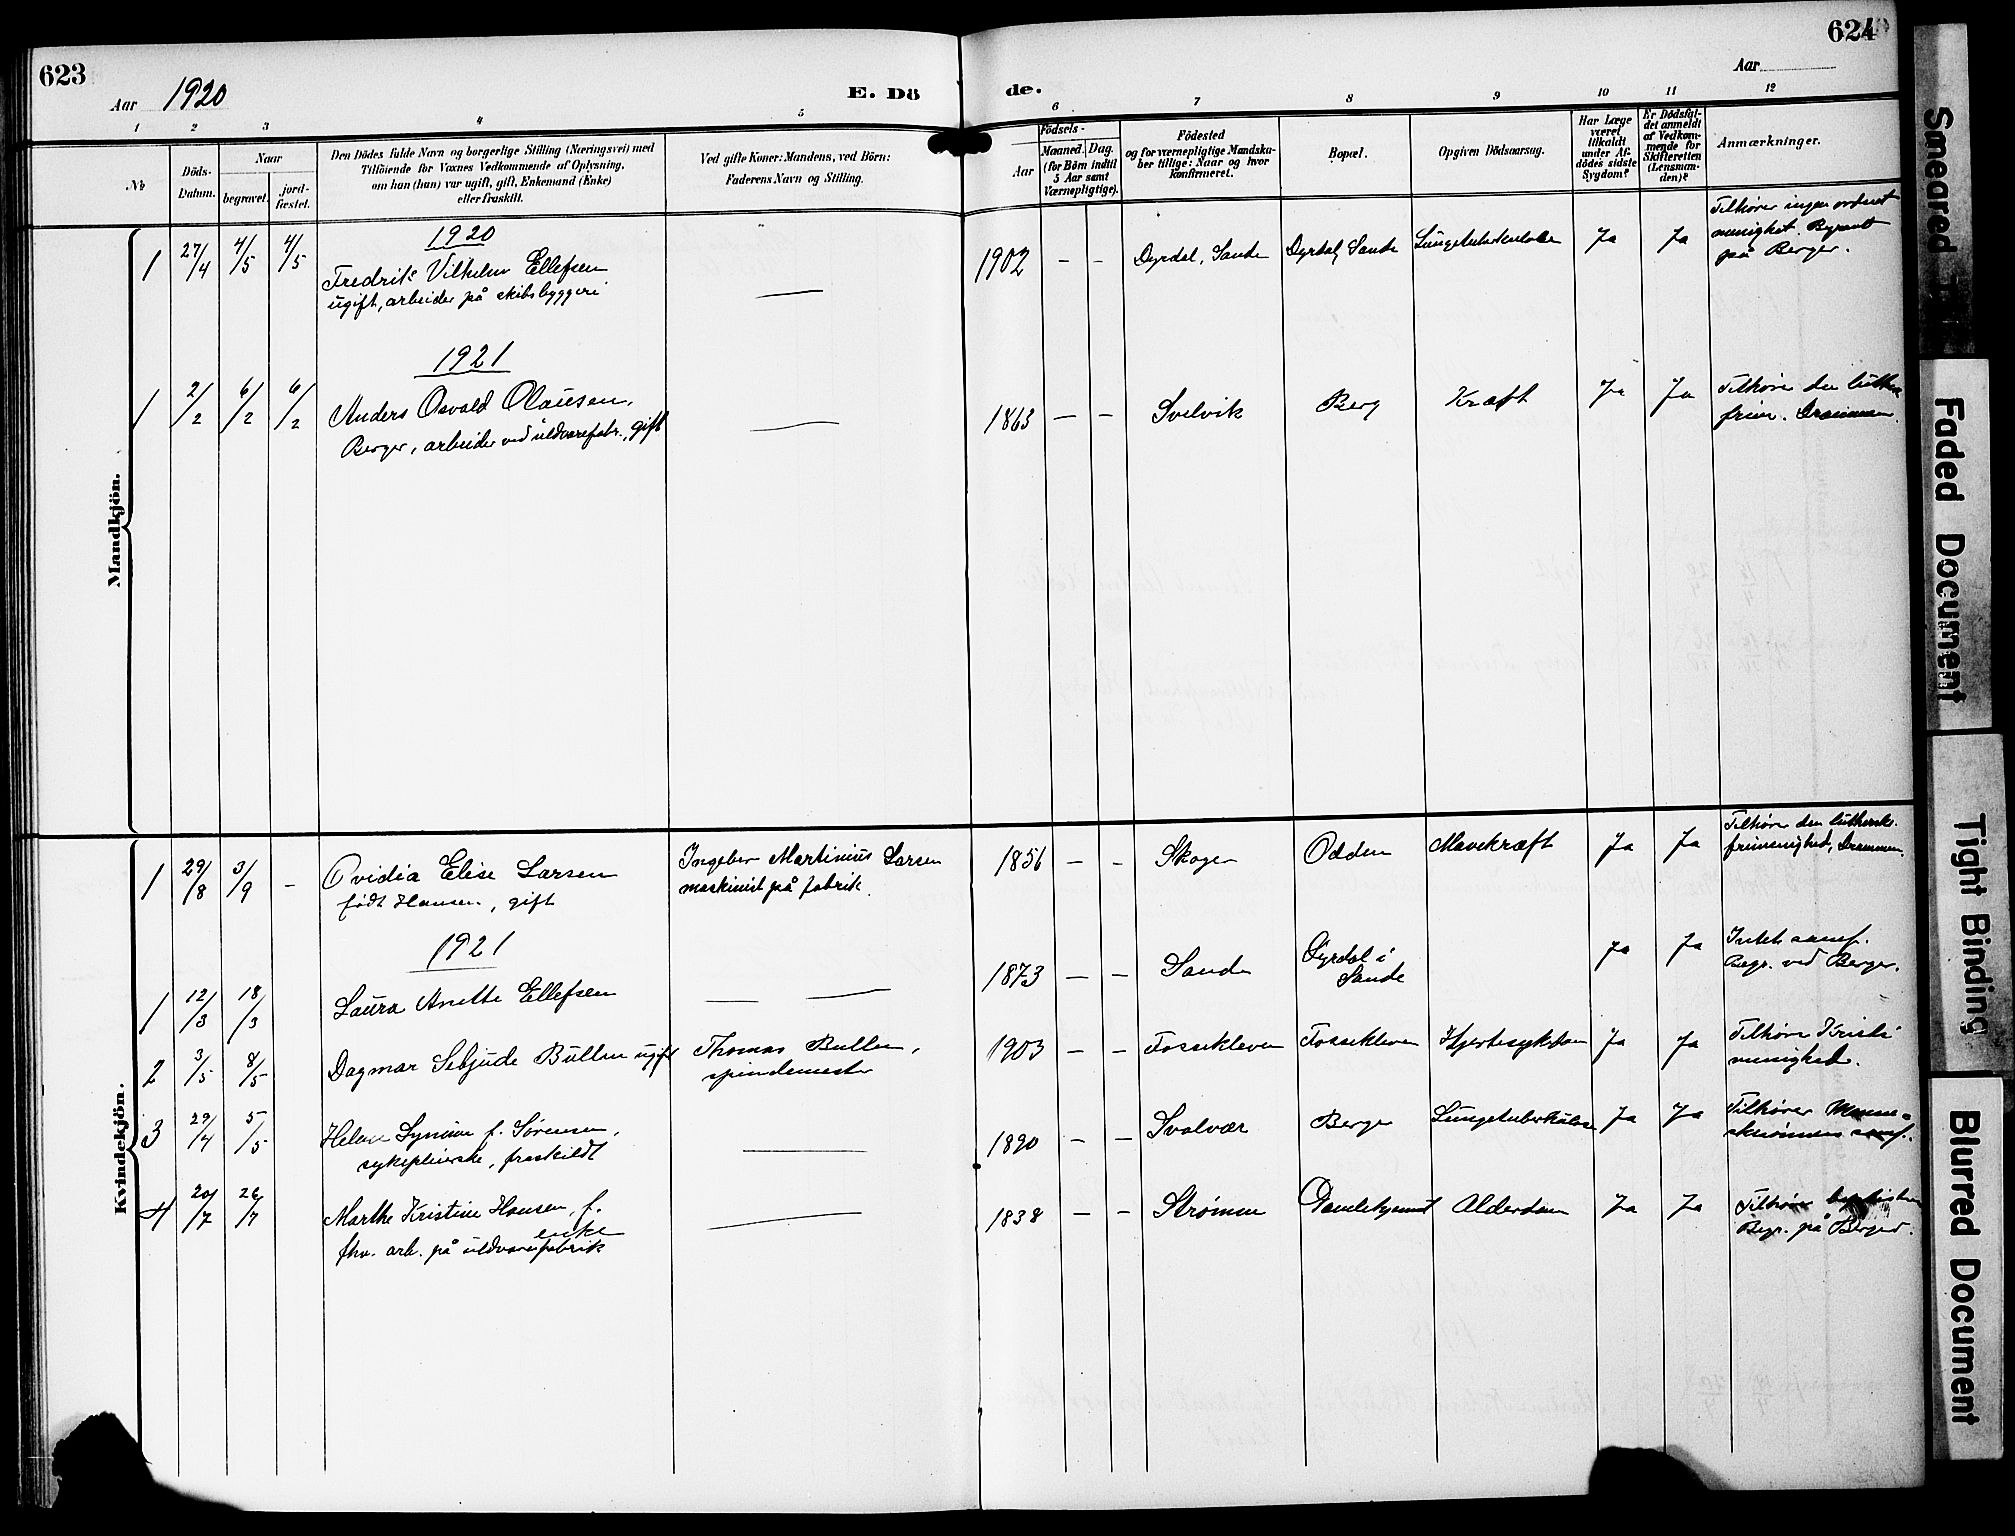 623
Aar 1920
E. Dö
de.
624
Aar
1
2
3
4
5
6
7
8
9
10
11
12
No
Döds-
Datum.
Naar
begravet.
jord-
fæstet.
Den Dödes fulde Navn og borgerlige Stilling (Næringsvei) med
Tilföiende for Voxnes Vedkommende af Oplysning,
om han (hun) var ugift, gift, Enkemand (Enke)
eller fraskilt.
Ved gifte Koner: Mandens, ved Börn:
Faderens Navn og Stilling.
Födsels-
Aar
Maaned. Dag.
(for Börn indtil
5 Aar samt
Værnepligtige).
Födested
og for værnepligtige Mandska-
ber tillige: Naar og hvor
konfirmeret.
Bopæl.
Opgiven Dödsaarsag.
Har Læge
været
tilkaldt
under Af-
dödes sidste
Sygdom?
Er Dödsfal-
det anmeldt
af Vedkom-
mende for
Skifteretten
(Lensman-
den)?
Anmærkninger.
Mandkjön.
1920
1 27/4 4/5 4/5 Fredrik Vilhelm Ellefsen
ugift, arbeider på skibsbyggeri
—
1902 – – Dyrdal, Sande Dyrdal, Sande Lungetuberkulose Ja Ja
Tilhører ingen ordnet
menighet. Begravet
på Berger.
1921
1 2/2 6/2 6/2 Anders Osvald Olausen,
Berger, arbeider ved uldvarefabr., gift
—
1863 – – Svelvik Berg Kræft Ja Ja
Tilhører den luthersk
frim. Drammen.
Kvindekjön.
1 29/8 3/9 – Ovidia Elise Larsen
født Hansen, gift
Ingeber Martinius Larsen
maskinist på fabrik.
1856 – – Skoger Odden Mavekræft Ja Ja
Tilhører den luthersk.
frimenighed, Drammen.
1921
1 12/3 18/3 Laura Anette Ellefsen
— —
1873 – – Sande Dyrdal i
Sande
Ja Ja
Intet samf.
Begr. ved Berger.
2 3/5 8/5 Dagmar Bullen ugift
Thomas Bullen,
spindemester
1903 – – Fossekleven Fossekleven Hjertesykdom Ja Ja
Tilhører Kristi
menighed.
3 29/4 5/5 f. Sørensen,
sykepleierske, fraskildt
—
1890 – – Svolvær Berger Lungetuberkulose Ja Ja
Tilhører
samf.
4 20/7 26/7 Marthe Kristine Hansen, f.
enke
fhv. arb. på uldvarefabrik
—
1838 – – Strømm Alderdom Ja Ja
Tilhører
Begr. på Berger.
Smeared
Faded Document
Tight Binding
Blurred Document